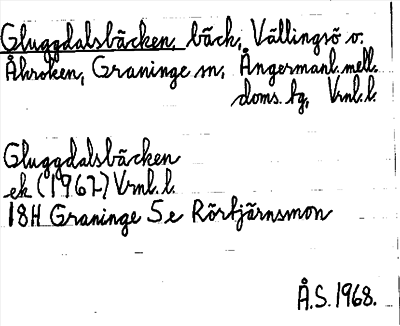 Gluggdalsbäcken, bäck, Vällingsö o.
Åkroken, Graninge sn, Ångermanl. mell.
doms. tg, Vrnl. l.
Gluggdalsbäcken
ek (1962) Vrnl. l.
18H Graninge 5e Rörtjärnsmon
Å.S. 1968.